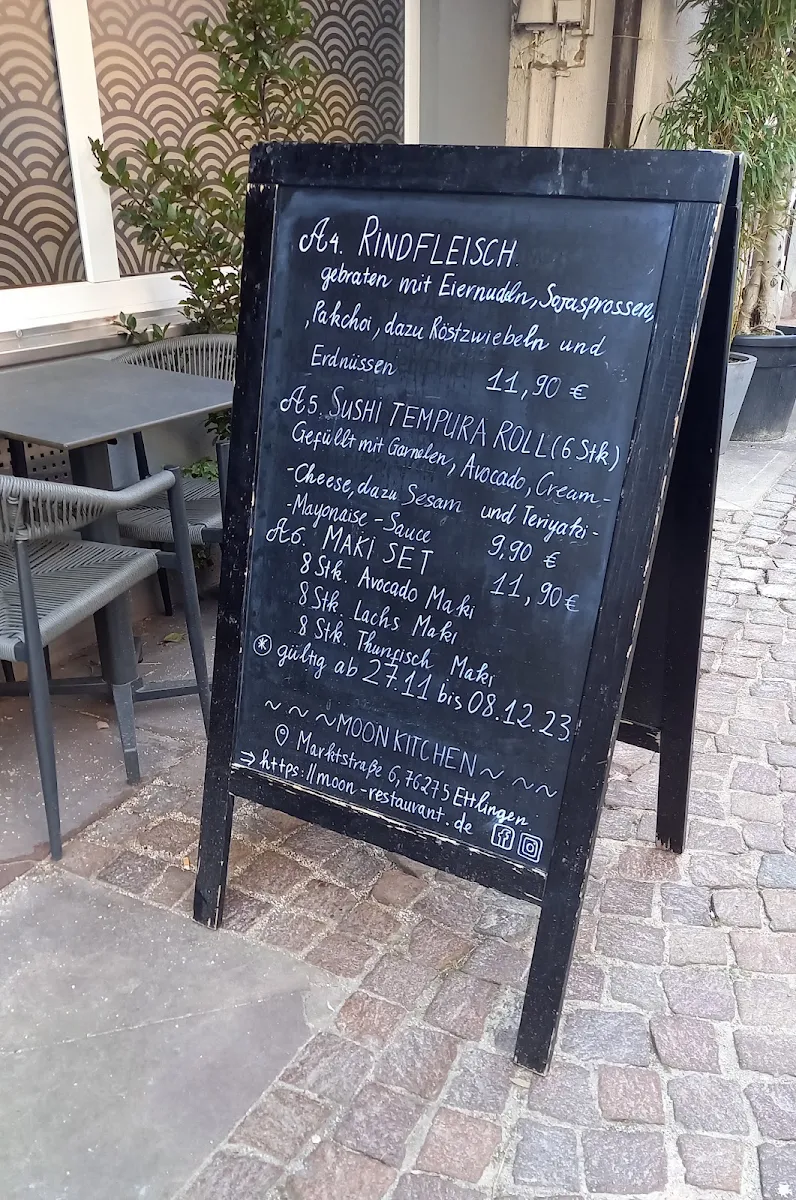 A4. RINDFLEISCH
gebraten mit Eiernudeln, Sojasprossen,
, Pakchoi, dazu Röstzwiebeln und
Erdnüssen 11,90 €
A5. SUSHI TEMPURA ROLL (6 Stk)
Gefüllt mit Garnelen, Avocado, Cream-
-Cheese, dazu Sesam und Teriyaki-
-Mayonaise - Sauce 9,90 €
A6. MAKI SET 11,90 €
8 Stk. Avocado Maki
8 Stk. Lachs Maki
8 Stk Thunfisch Maki
* gültig ab 27.11 bis 08.12.23
~ ~ ~ MOON KITCHEN ~ ~ ~
Marktstraße 6, 76275 Ettlingen
→ https://moon-restaurant.de